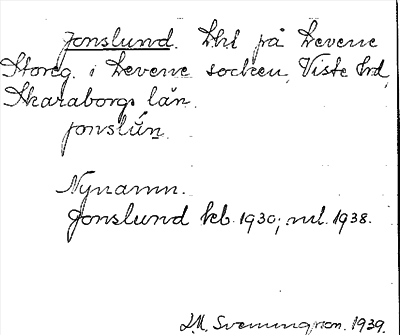 Jonslund. Lht på Levene
Storeg. i Levene socken, Viste hrd,
Skaraborgs län.
jonslún.
Nynamn.
Jonslund kb. 1930; ml. 1938.
Svenningson. 1939.